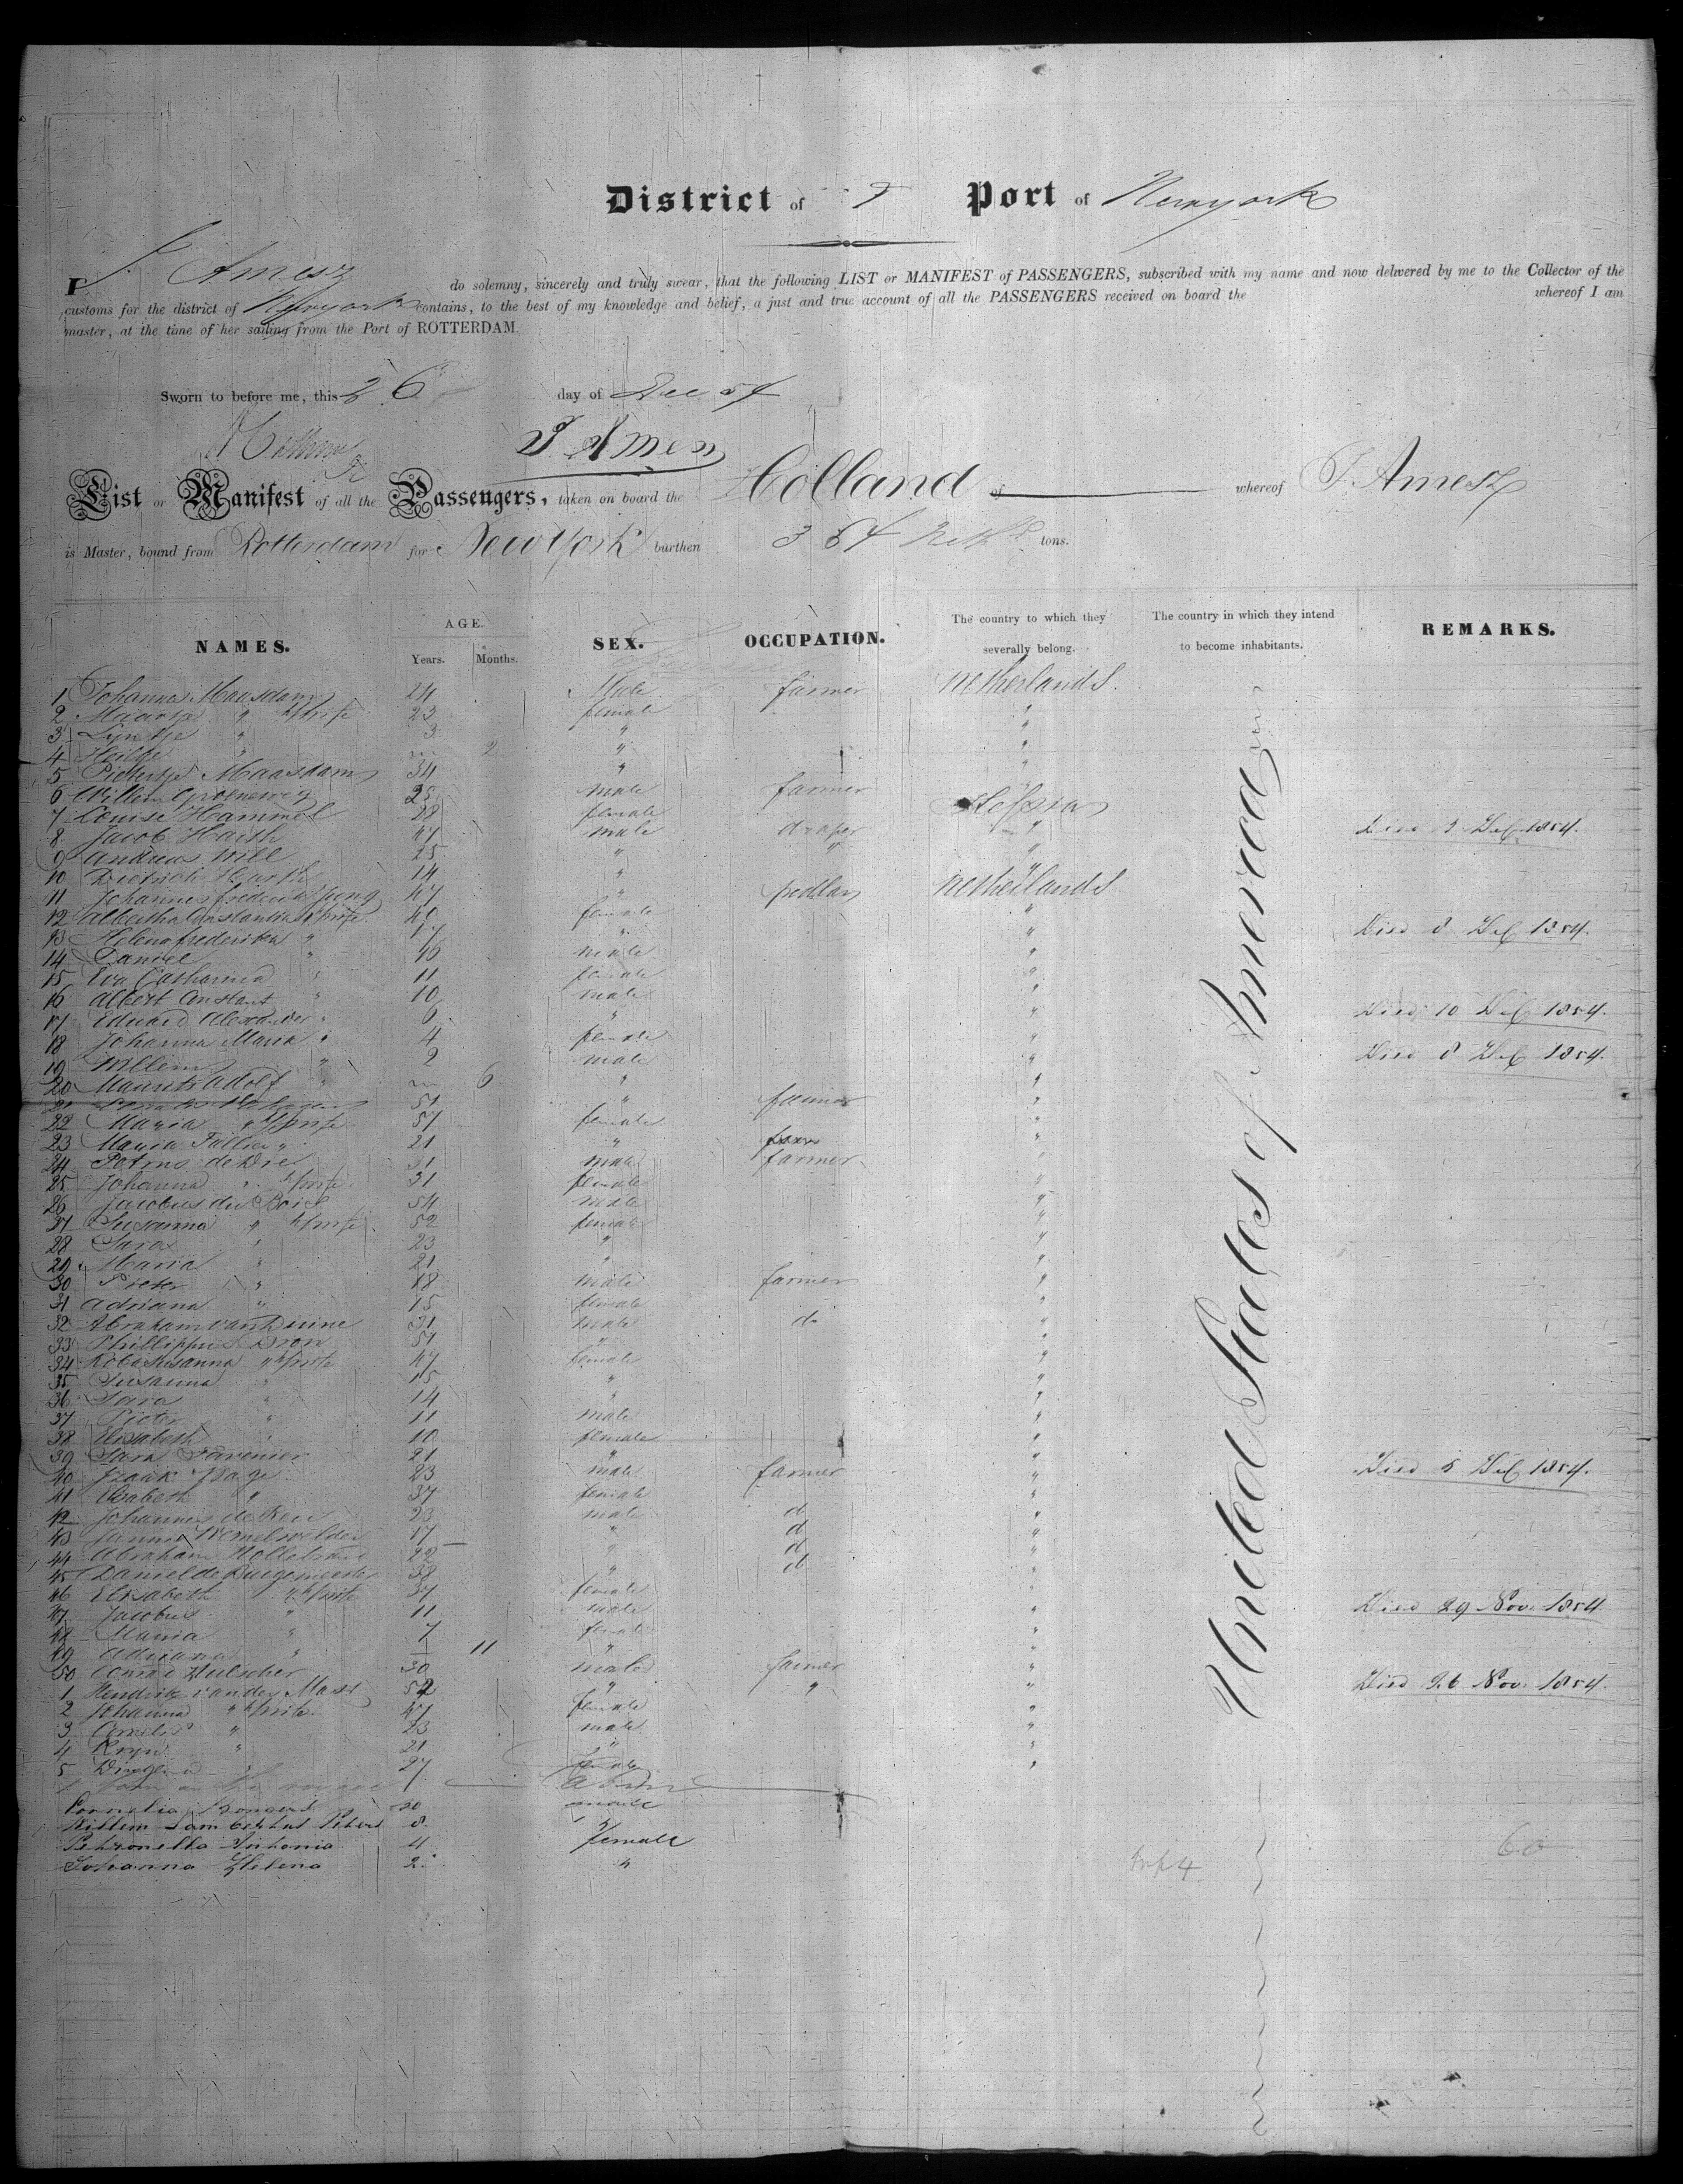 District of Port of Newyork
I J. Amesz do solemny, sincerely and truly swear, that the following LIST or MANIFEST of PASSENGERS, subscribed with my name and now delivered by me to the Collector of the
customs for the district of Newyork contains, to the best of my knowledge and belief, a just and true account of all the PASSENGERS received on board the whereof I am
master, at the time of her sailing from the Port of ROTTERDAM.
Sworn to before me, this 26 day of Dec 54
J. Amesz
List or Manifest of all the Passengers, taken on board the Holland of whereof J. Amesz
is Master, bound from Rotterdam for New York burthen tons.
NAMES. AGE. Years. Months. SEX. OCCUPATION. The country to which they severally belong. The country in which they intend to become inhabitants. REMARKS.
United States of America
1 Johannes Maasdam 24 Male farmer Netherlands
2 Maartje " " wife 23 female "
3 Lijntje " 3 " "
4 " "
5 Pietertje Maasdam 34 " "
6 Willem Groeneweg 25 male farmer "
7 Louise Hammel 28 female
8 Jacob Harth 47 male draper " Died Dec 1854.
9 Andreas Will 25 " " "
10 Dietrich Harth 14 " "
11 Johannes Frederik Jung 47 " pedlar Netherlands
12 Albertha Constantia " wife 40 female "
13 Helena Frederika " 17 " " Died 8 Dec 1854.
14 Daniel " 16 male "
15 Eva Catharina " 11 female "
16 Albert Constant " 10 male "
17 Eduard Alexander " 6 " " Died 10 Dec 1854.
18 Johanna Maria " 4 female "
19 Willem " 2 male " Died 8 Dec 1854.
20 Maurits Adolf " 6 " "
21 51 " farmer "
22 Maria " " wife 51 female "
23 Maria 21 " "
24 Petrus de Dre 31 male farmer "
25 Johanna " " wife 31 female
26 Jacobus du Bois 54 male "
27 Susanna " " wife 52 female "
28 Sara " 23 " "
29 Maria " 21 " "
30 Pieter " 18 male farmer "
31 Adriana " 15 female "
32 Abraham van Duine 31 male do "
33 Phillippus 51 " "
34 Susanna " " wife 47 female "
35 Susanna " 15 " "
36 Sara " 14 " "
37 Pieter " 11 male "
38 Elisabeth " 10 female "
39 Sara Tavenier 21 " "
40 Izaak 23 male farmer " Died 5 Dec 1854.
41 Elisabeth " 37 female "
42 Johannes de Ree 23 male d "
43 17 " d "
44 Abraham 22 " d "
45 Daniel de Burgemeester 38 " d "
46 Elisabeth " " wife 37 female "
47 Jacobus " 11 male " Died 29 Nov. 1854.
48 Maria " 7 female "
49 Adriana " 11 " "
50 Hulscher 30 male farmer "
1 Hendrik van der Mast 52 " " " Died 26 Nov. 1854.
2 Johanna " " wife 47 female "
3 " 23 male "
4 Kryn " 21 " "
5 27 female "
born on the voyage
Cornelia 30
Willem Lambertus 8 "
Petronella Antonia 4 female
Johanna Helena 2 "
60